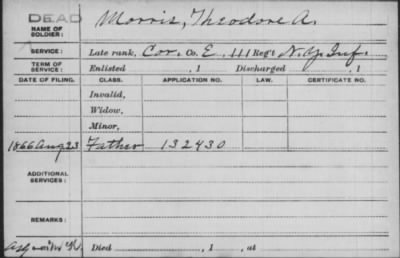 DEAD
NAME OF SOLDIER: Morris, Theodore A.
SERVICE: Late rank, Cor, Co. E, 111 Reg't N.Y. Inf.
TERM OF SERVICE: Enlisted , 1 Discharged , 1
DATE OF FILING. CLASS. APPLICATION NO. LAW. CERTIFICATE NO.
Invalid,
Widow,
Minor,
1866 Aug 23 Father 132430
ADDITIONAL SERVICES:
REMARKS:
Died , 1 , at